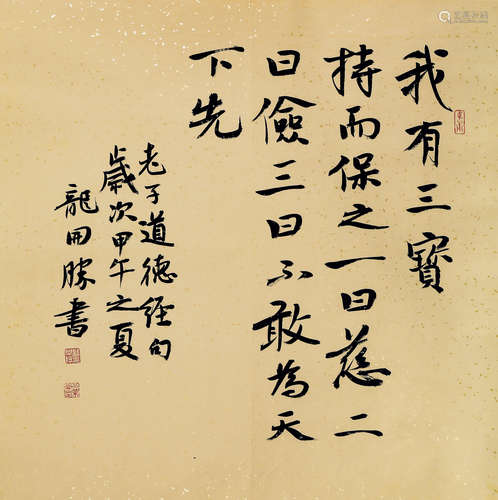 我有三寶
持而保之一曰慈二
曰儉三曰不敢為天
下先
老子道德經句
歲次甲午之夏
龍開勝書